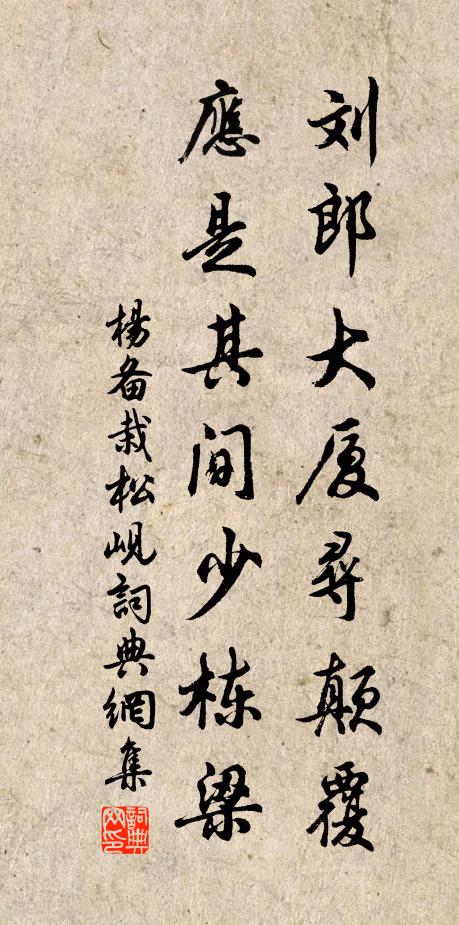 刘郎大厦寻颠覆
應是其间少栋梁
楊备栽松岘詞典網集
詞典網印